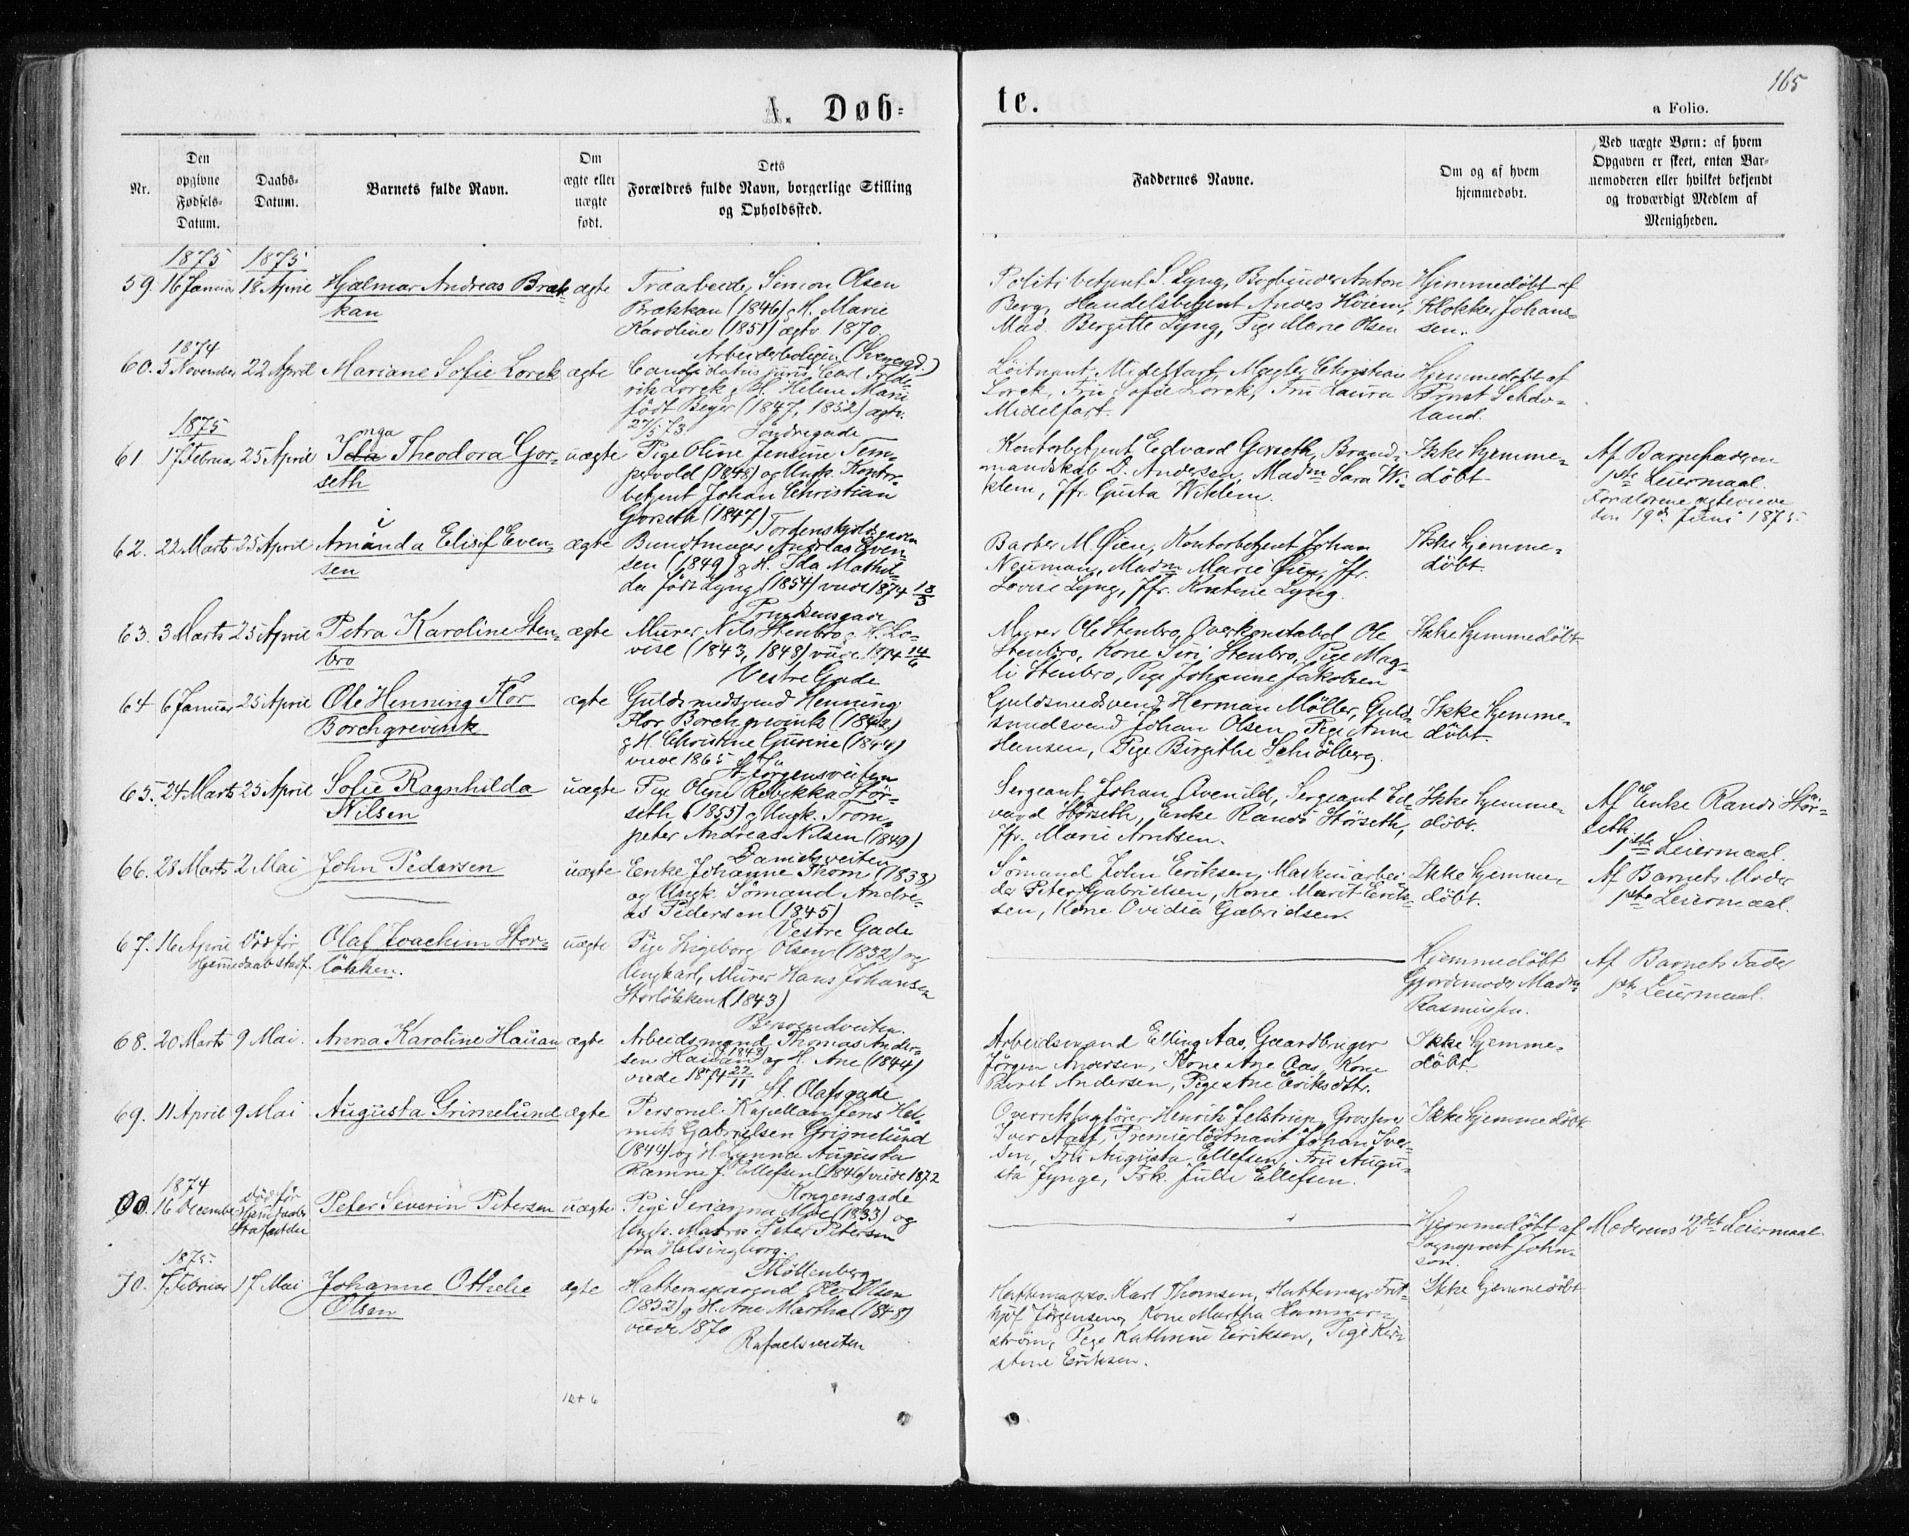 165
A. Døb-
te.
a Folio.
Nr.
Den opgivne Fødsels-Datum.
Daabs-Datum.
Barnets fulde Navn.
Om ægte eller uægte født.
Dets Forældres fulde Navn, borgerlige Stilling og Opholdssted.
Faddernes Navne.
Om og af hvem hjemmedøbt.
Ved uægte Børn: af hvem Opgaven er skeet, enten Barnemoderen eller hvilket bekjendt og troværdigt Medlem af Menigheden.
1875 1875
59. 16 Januar 18 April Hjalmar Andreas Bræk- ægte Træarbeider Simon Olsen
kan Brækkan (1846) g. H. Marie
Karoline (1851) ægtv. 1870.
Politibetjent S. Lyng, Bogbinder Anton
Berg, Handelsbetjent Anders Höiem,
Mad. Bergitte Lyng, Pige Marie Olsen
Hjemmedöbt af
Klokker Johans-
sen.
1874 Arbeiderboligen (Sverresgd.)
60. 5 November 22 April Mariane Sofie Lorck ægte Candidatus juris Carl Frede-
rik Lorck g. H. Helene Marie
födt Beyer (1847, 1852) ægtv.
27/5 73. Söndregade
Löitnant Midelfart, Mægler Christian
Lorck, Fru Sofie Lorck, Fru Laura
Midelfart.
Hjemmedöbt af
Ernst Schdv-
land.
1875
61. 17 Februar 25 April Inga Theodora Gor- uægte Pige Oline Jensine Tem-
seth pervold (1848) og Ungk. Kontor-
betjent Johan Christian
Gorseth (1847) Tordenskjoldsgaden
Kontorbetjent Edvard Gorseth, Brand-
mandskab D. Andersen, Madm Sara Wi-
klem, Jfr. Gusta Wiklem.
Ikke hjemme-
döbt
Af Barnefaderen
1ste Leiermaal.
Forældrene ægteviede
den 19de Juni 1875.
62. 22 Marts 25 April Amanda Elisif Even- ægte Bundtmager Andreas Even-
sen sen (1849) g. H. Ida Mathil-
de födt Lyng (1854) viede 1874 18/3
Barber M. Öien, Kontorbetjent Johan
Neuman, Madm Marie Öien, Jfr.
Lovise Lyng, Jfr. Kristine Lyng.
Ikke hjemme-
döbt.
63. 3 Marts 25 April Petra Karoline Sten- ægte Murer Nils Stenbro g. H. Lo-
bro vise (1843, 1848) viede 1874 14/6
Vestre Gade
Murer Ole Stenbro, Overkonstabel Ole
Stenbro, Kone Siri Stenbro, Pige Mag-
li Stenbro, Pige Johanne Jakobsen
Ikke hjemmedöbt
64 6 Januar 25 April Ole Henning Flor ægte Guldsmedsvend Henning
Borchgrevink Flor Borchgrevink (1842)
g. H. Christine Gurine (1844)
viede 1865
St. Jörgensveiten
Guldsmedsvend Herman Möller, Guld-
smedsvend Johan Olsen, Pige Anne
Hensen, Pige Birgithe Schiölberg.
Ikke hjemme-
döbt.
65. 24 Marts 25 April Sofie Ragnhilda uægte Pige Oline Rebekka Stör-
Nilsen seth (1855) og Ungk. Trom-
peter Andreas Nilsen (1849)
Danielsveiten
Sergeant Johan Övenild, Sergeant Ed-
vard Störseth, Enke Randi Störseth,
Jfr. Marie Arntsen.
Ikke hjemme-
döbt.
Af Enke Randi Stör-
seth
1ste Leiermaal.
66. 28 Marts 2 Mai John Pedersen uægte Enke Johanne Thom (1833)
og Ungk. Sömand Andre-
as Pedersen (1845)
Vestre Gade
Sömand John Eriksen, Maskinarbei-
der Peter Gabrielsen, Kone Marit Erik-
sen, Kone Ovidia Gabrielsen.
Ikke hjemme-
döbt.
Af Barnets Moder
1ste Leiermaal.
67. 16 April Död för Olaf Joachim Stor- uægte Pige Ingeborg Olsen (1832) og
Hjemdaab stadf. lökken. Ungkarl, Murer Hans Johansen
Storlökken (1843)
Hjemmedöbt
Gjordemoder Madm
Rasmussen.
Af Barnets Fader
1ste Leiermaal.
68. 20 Marts 9 Mai. Anna Karoline Hauan ægte Arbeidsmand Thomas Ander-
sen Hauan (1843) og H. Ane (1844)
viede 1874 22/11
St. Olafsgade
Arbeidsmand Elling Aas, Gaardbruger
Jörgen Andersen, Kone Ane Aas, Kone
Beret Andersen, Pige Ane Eriksdtr.
Ikke hjemme-
döbt
69. 11 April 9 Mai Augusta Grimelund ægte Personel Kapellan Jens Hel-
mith Gabrielsen Grimelund
(1844) og H. Lynna Augusta
Ramne f. Ellefsen (1846) viede 1872
Kongensgade
Overretssagförer Henrik Jelstrup, Grosserer
Iver Aas, Premierlöitnant Johan Iver-
sen, Fru Augusta Ellefsen, Fru Augu-
sta Jynge, Frk. Julie Ellefsen.
Ikke hjemmedöbt
1874
00. 16 December död för Peter Severin Petersen uægte Pige Serianna Moe (1833) og
Ungk. Matros Peter Petersen
fra Helsingborg.
Möllenberg
Hjemmedöbt af
Sogneprest John-
son.
Moderens 2det Leiermaal
1875.
70. 7 Februar 17 Mai Johanne Othelie ægte Hattemagersvend Ole Olsen
Olsen (1852) g. H. Ane Martha (1848)
viede 1870
Rafaelsveiten
Hattemagersv. Karl Thomsen, Hattemager Frit-
hjof Jörgensen, Kone Martha Hammer-
ström, Pige Kathrine Eriksen, Pige Kri-
stine Eriksen.
Ikke hjemmedöbt
10 + 6